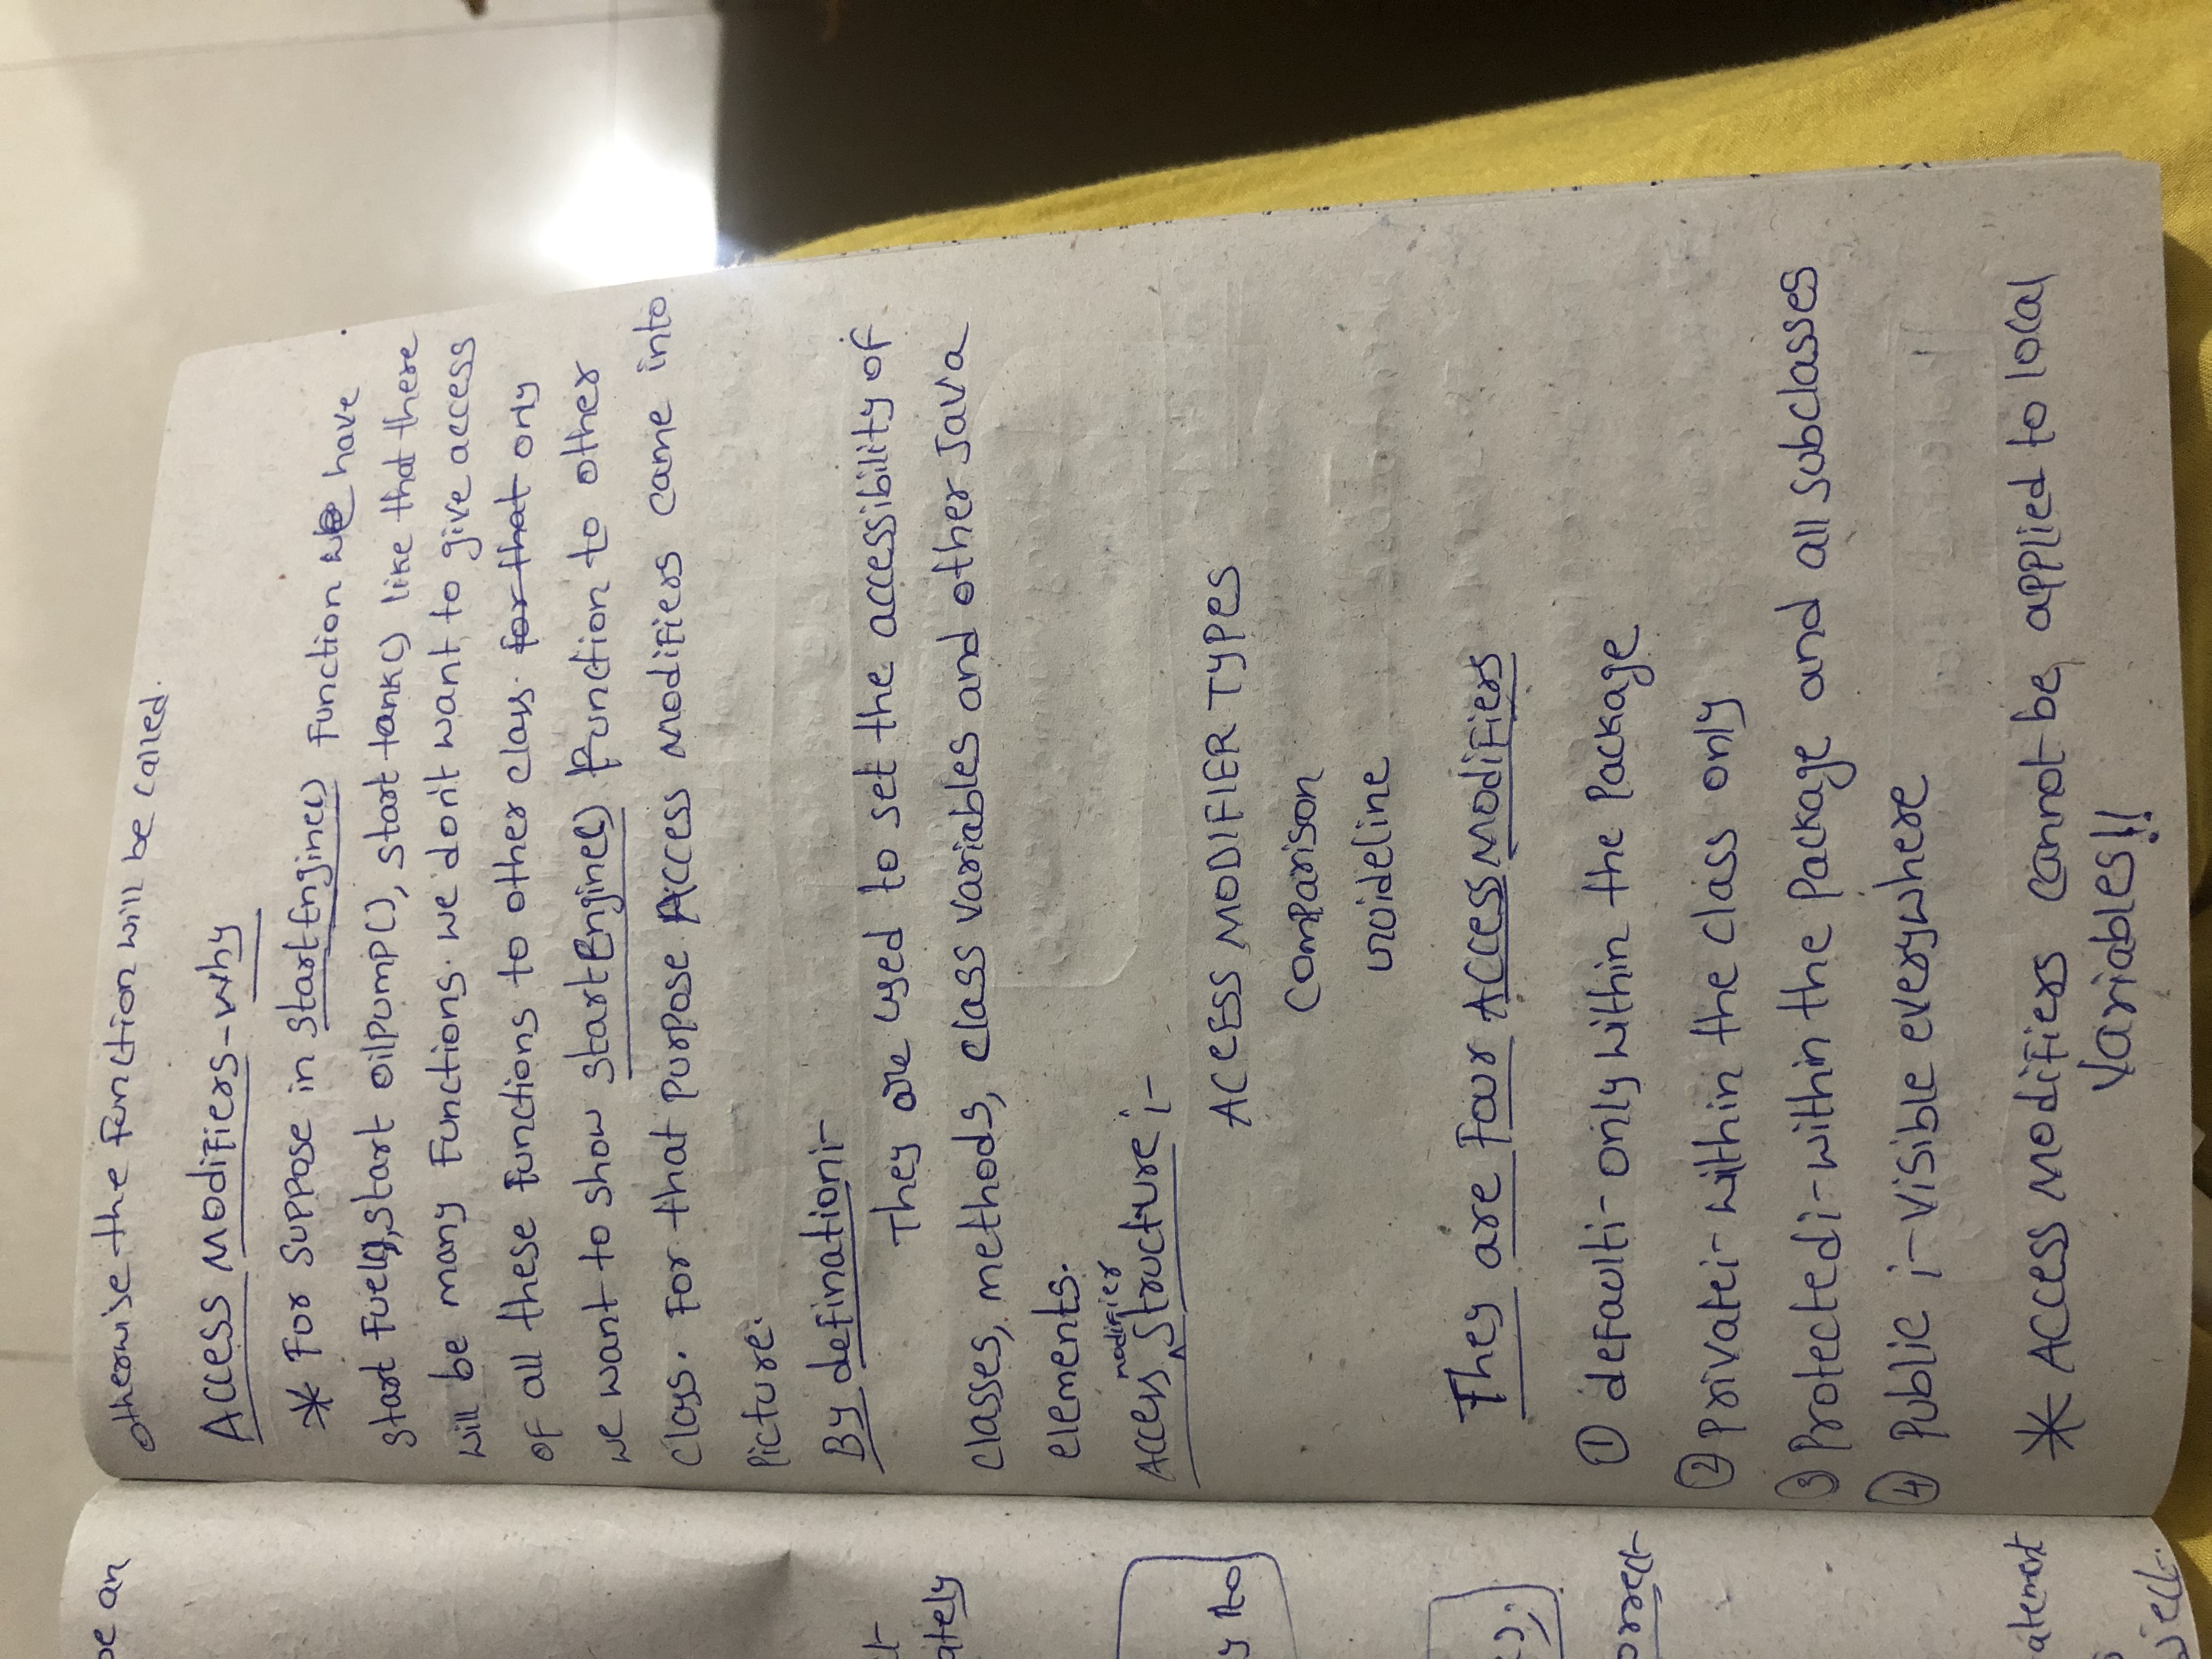 otherwise the function will be called.
Access Modifiers-Why
* For suppose in startEngine() function we have
start Fuel(), start oilpump(), start tank() like that there
will be many Functions. we don't want to give access
of all these functions to other class. for that only
we want to show startEngine() function to other
class. For that purpose Access Modifiers came into
picture.
By defination:-
They are used to set the accessibility of
classes, methods, class variables and other Java
elements.
modifier
Access ^ structure :-
ACCESS MODIFIER TYPES
Comparison
Guideline
They are Four Access Modifiers
① default:- only within the package
② Private:- within the class only
③ Protected:- within the package and all subclasses
④ Public :- Visible everywhere
* Access Modifiers cannot be applied to local
Variables!!
be an
ately
y to
orrect
atement
ject.